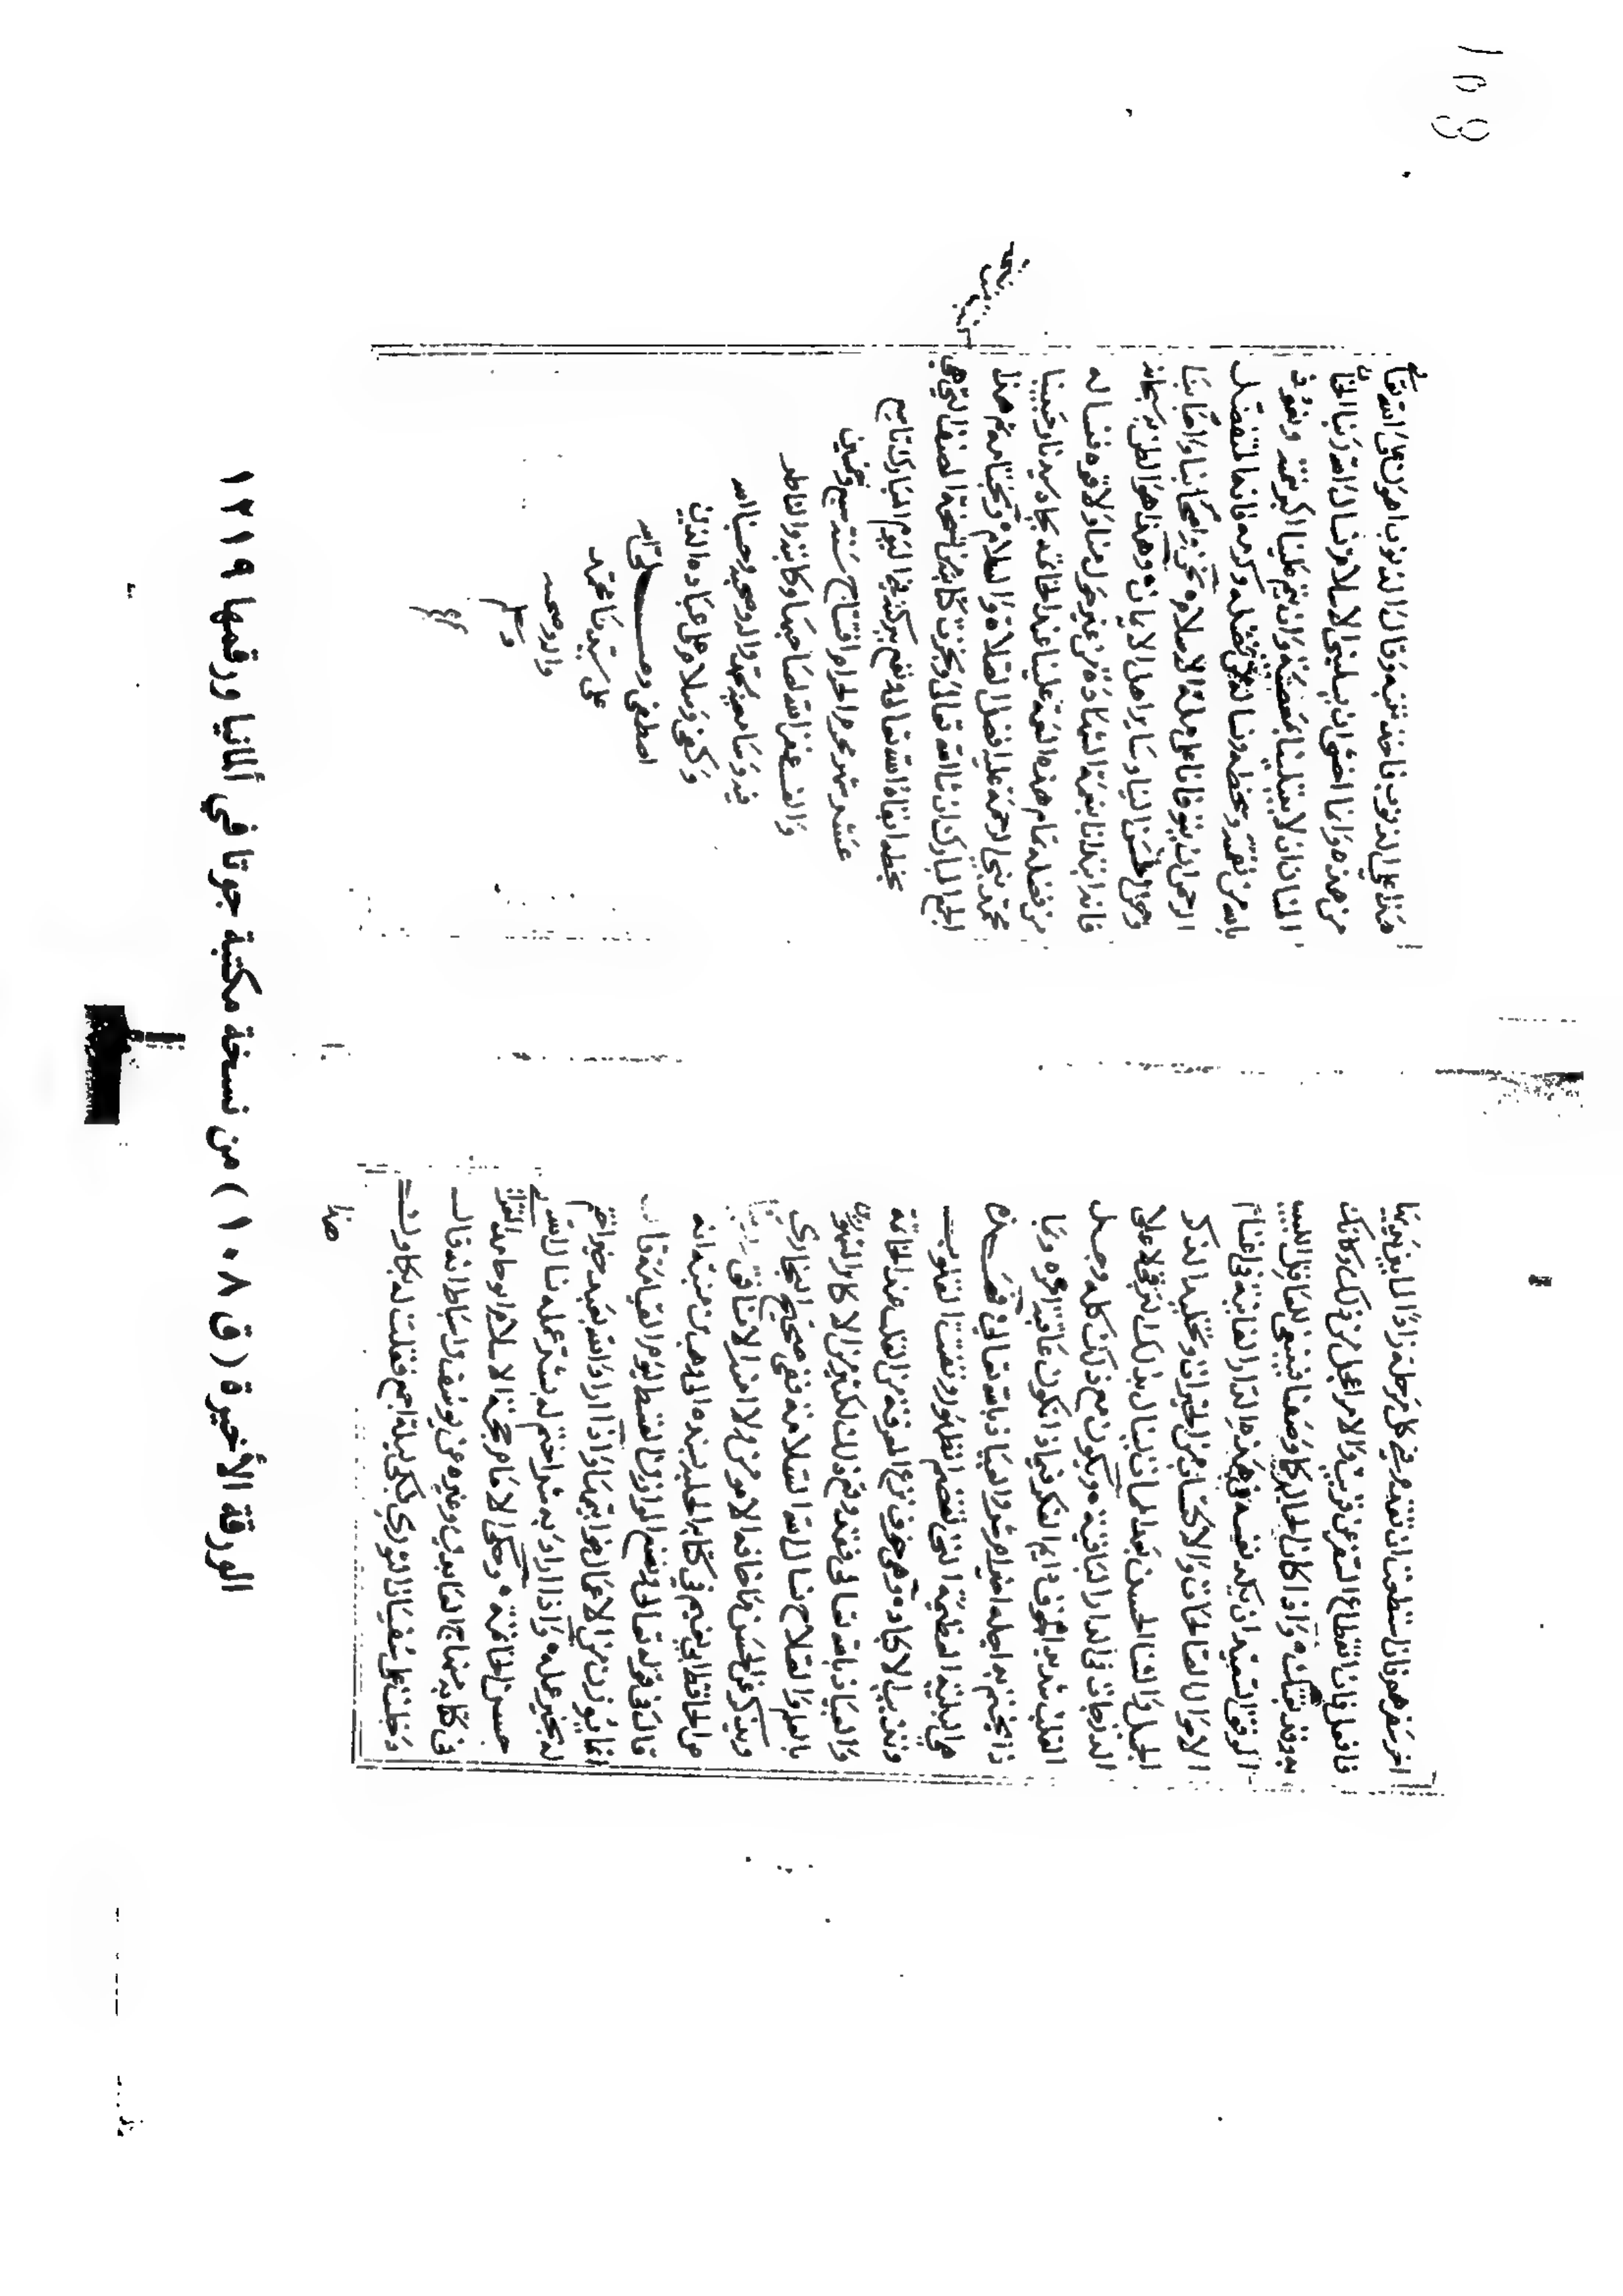 اخر سفر هو فان استطعت ان تقدم في كل مرحلة زادا لما بين يديها
فافعل فان انقطاع السفر عن قريب والامر اعجل من ذلك وكانك
به وقد بغتك واذا كان الحال وصفنا فينبغي للعاقل اللبيب
الموفق السعيد ان يكد نفسه في هذه الدار الفانية في اغتنام
الاعمال الصالحات والاكتساب من الخيرات وتخليد الذكر
الجميل والثناء الحسن بعد الممات لينال بذلك الترقي لاعلى
الدرجات في الدار الباقية ويكون مع ذلك كله وجل
القلب شديد الخوف دايم الفكر فيماذا تكون عاقبة امره وبما
ذا يختم به اجله اخير ام شر والعياذ بالله تعالى فهذه
هي البلية العظيمة التي تقصم الظهور وتفتت القلوب
وتذيب الاكباد وهي خوف نزع المعرفة من القلب عند الخاتمة
والعياذ بالله تعالى فقد وقع ذلك لكثير من الاكابر المشهورين
بالعلم والصلاح نسال الله السلامة ففي صحيح البخاري
ويذكر عن الحسن ما خافه الا مومن ولا امنه الا منافق
حكى الحافظ ابو نعيم في كتابه الحلية بسنده الى وهب بن منبه انه
قال في قوله تعالى ونضع الموازين القسط ليوم القيامة قال
انما يوزن من الاعمال خواتيمها واذا اراد الله بعبد خيرا ختم
له بخير عمله واذا اراد به شرا ختم له بشر عمله نسال الله
حسن الخاتمة وحكى الامام حجة الاسلام ابو حامد الغزالي
في كتابه منهاج العابدين وغيره عن يوسف بن اسباط انه قال
دخلت على سفيان الثوري فبكى ليلة اجمع فقلت له بكاوك
هذا
هذا على الذنوب فاخذ تبنة وقال الذنوب اهون على الله تعالى
من هذه وانما اخشى ان يسلبني الاسلام نسال الله ربنا الحنان
المنان ان لا يبتلينا بمعصيته وان يتم علينا اكبر نعمته ونعوذ
بالله من نقمته وسخطه ونساله من فضله وكرمه فانه المتفضل
الرحمن ان يتوفانا على ملة الاسلام نحن واصحابنا واحبابنا
الينا وساير اهل الايمان وهذا هو الظن به سبحانه
فانه ابتدانا بنعمة الشهادة من غير حول منا ولا قوة فنساله
من فضله تمام هذه النعمة علينا عند الخاتمة بجاه سيدنا ونبينا
محمد نبي الرحمة عليه افضل الصلاة والسلام وبختامه تم هذا
الجمع المبارك ان شاء الله تعالى ونجزت كتابة هذه النسخة
بخطه ابقاه الله تعالى ونفع ببركته في اليوم المبارك تاسع
عشر شهر محرم الحرام افتتاح سنة سبع وخمسين
والف غفر الله لصاحبها وكاتبه والناظر
فيه بمحمد واله وصحبه وحسبنا الله
وكفى وسلام على عباده الذين
اصطفى وصلى الله
على سيدنا محمد
واله وصحبه
وسلم
الورقة الأخيرة (ق ١٠٨) من نسخة مكتبة جوتا في ألمانيا ورقمها ١٢١٩